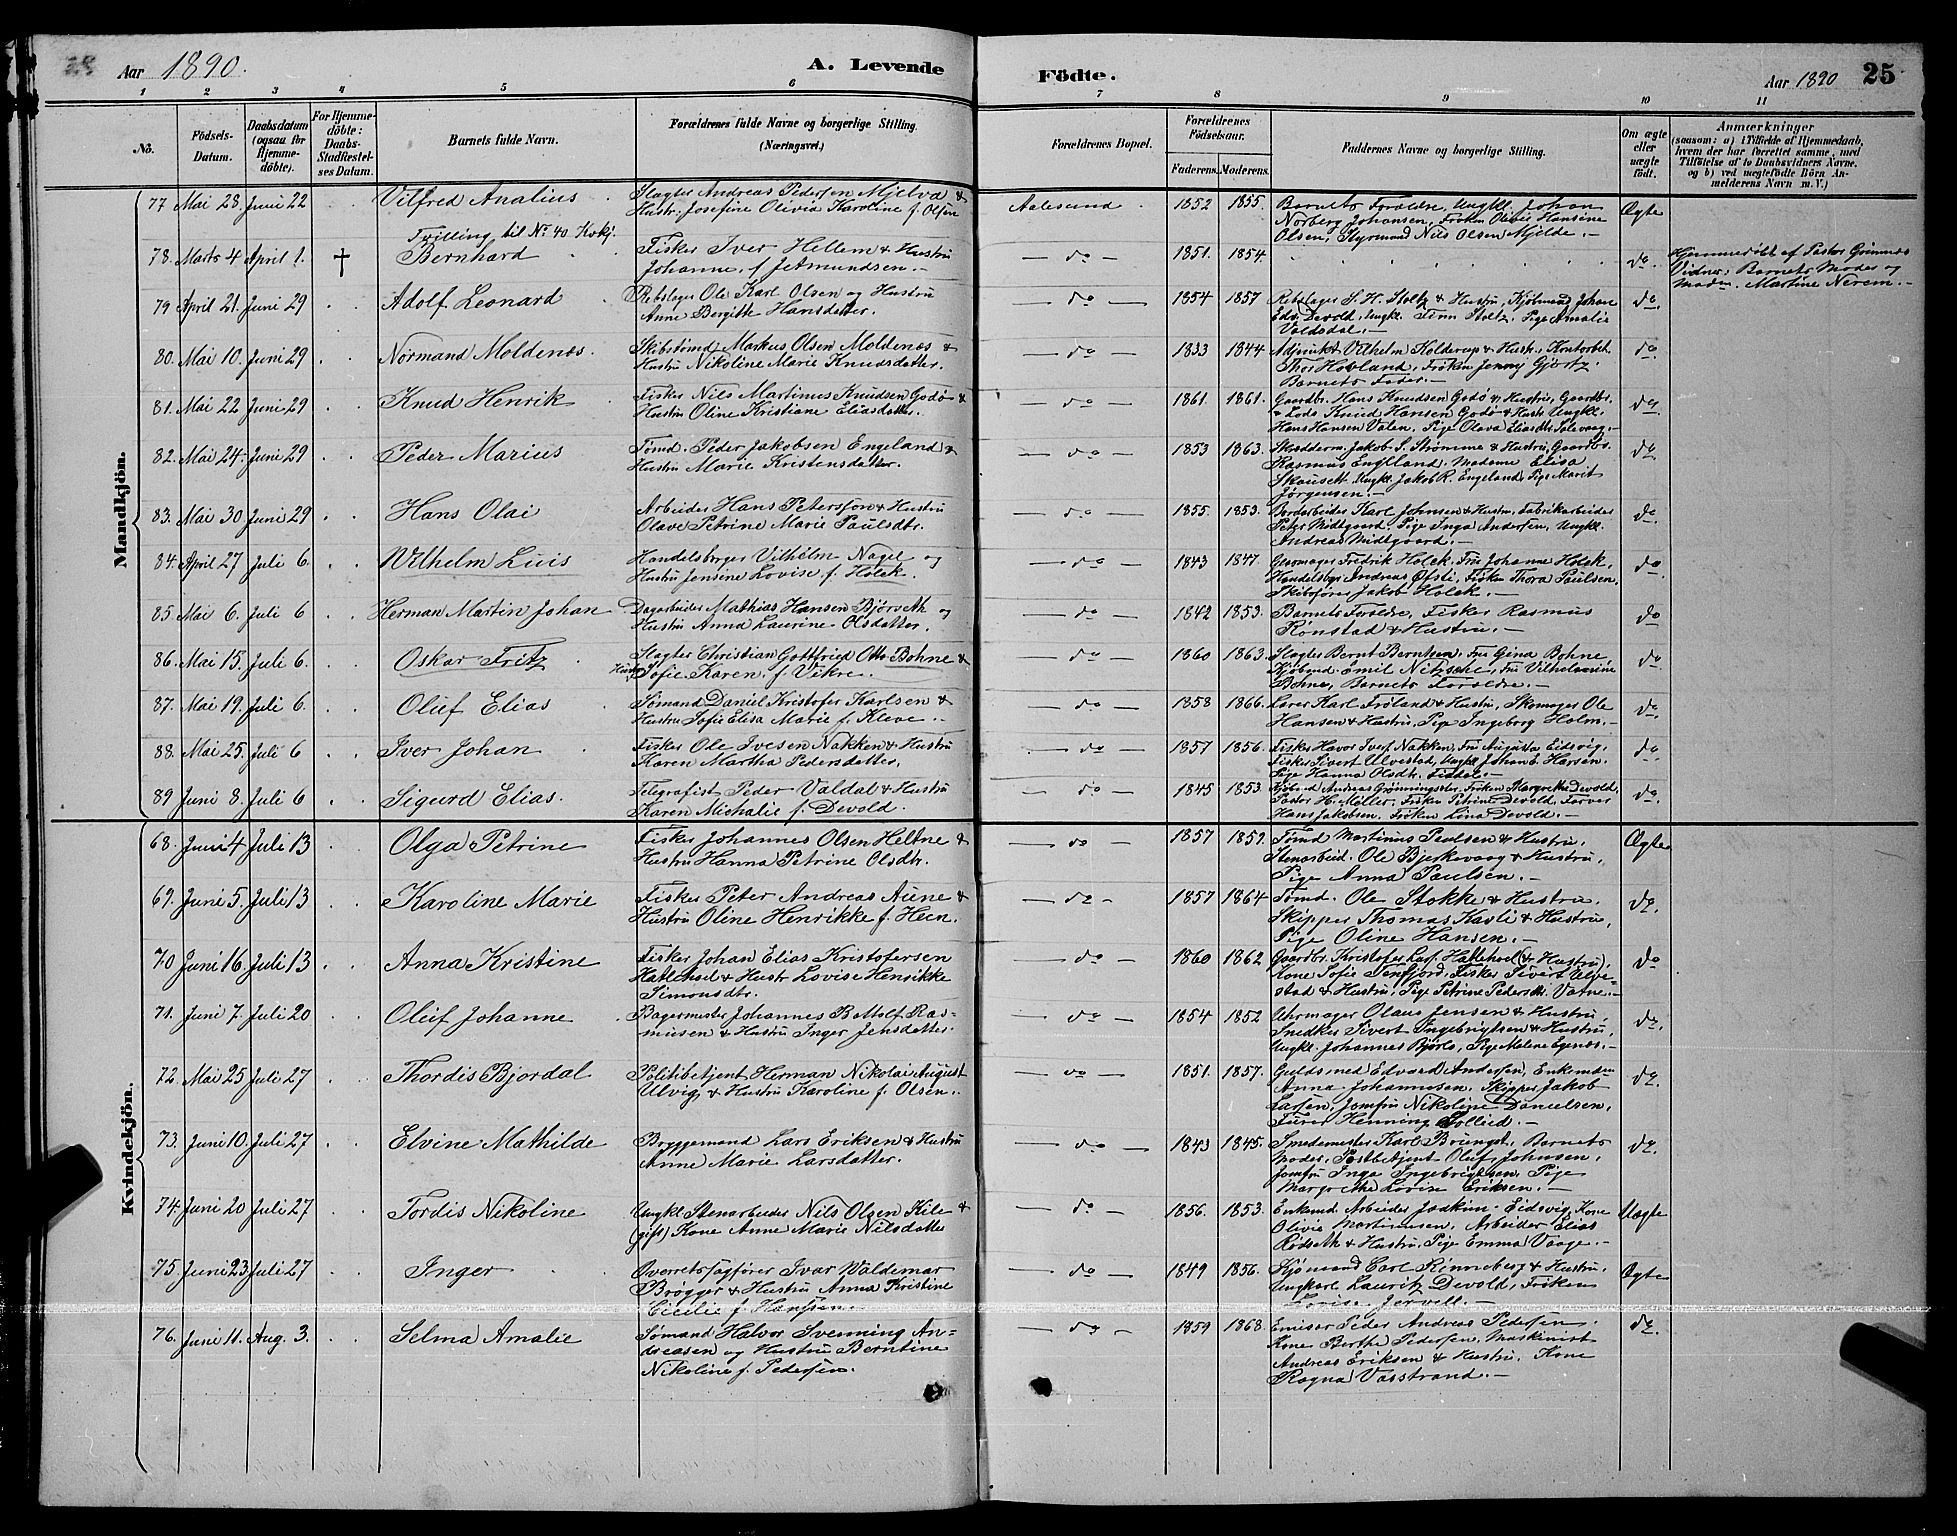 Aar 1890.
A. Levende
Födte.
Aar 1890
25
1 2 3 4 5 6 7 8 9 10 11
No.
Födsels-Datum.
Daabsdatum (ogsaa for Hjemme-döbte).
For Hjemme-döbte: Daabs-Stadfæstel-ses Datum.
Barnets fulde Navn.
Forældrenes fulde Navne og borgerlige Stilling. (Næringsvei.)
Forældrenes Bopæl.
Forældrenes Födselsaar.
Faderens. Moderens.
Faddernes Navne og borgerlige Stilling.
Om ægte eller uægte födt.
Anmærkninger
(saasom: a) i Tilfælde af Hjemmedaab, hvem der har forrettet samme, med Tilföielse af to Daabsvidners Navne, og b) ved uægtefödte Börn Anmelderens Navn m. V.)
Mandkjön.
77 Mai 28. Juni 22 Vilfred Analius Slagter Andreas Pedersen Mjelva &
Hustr. Josefine Olivia Karoline f. Olsen Aalesund 1852 1855. Barnets Foraldre, Ungkl. Johan
Norberg Johansen, Frøken Olivie Hansine
Olsen, Styrmand Nils Olsen Mjelde. Ægte
Tvilling til No. 40 Kvkj.
78. Marts 4 April 1. † Bernhard Fisker Iver Hellem & Hustru
Johanne, f. Jetmundsen. do 1851. 1854. do. Hjemmedöbt af Pastor Grimnes
Vidner: Barnets Moder og
Madm. Martine Nerem.
79 April 21. Juni 29 Adolf Leonard Rebslager Ole Karl Olsen og Hustru
Anne Bergitte Hansdatter. do 1854 1857 Rebslager S. H. Stoltz & Hustru, Kjøbmand Johan
Edv. Devold, Ungkl. Finn Stoltz, Pige Amalie
Valdsdal. do.
80. Mai 10. Juni 29 Normand Moldenæs. Skibstømd. Markus Olsen Moldenæs &
Hustru Nikoline Marie Knudsdatter. do 1833 1844 Adjunkt Vilhelm Kolderup & Hustr., Kontorbet.
Thor Hovland, Frøken Jenny Gjørtz.
Barnets Fader. do
81. Mai 22 Juni 29 Knud Henrik Fisker Nils Martinus Knudsen Godö &
Hustru Oline Kristiane Eliasdatter. do 1861. 1861. Gaardbr. Hans Knudsen Godö & Hustru, Gaardbr.
& Lods Knud Hansen Godö & Hustr. Ungkl.
Hans Hansen Valen, Pige Olava Eliasdtr. do
82. Mai 24. Juni 29 Peder Marius Tømd. Peder Jakobsen Engeland &
Hustru Marie Kristensdatter. do 1853 1863. Jakob S. Strømme & Hustru, Gaardbr.
Rasmus Engeland. Madame Elisa
Ungkl. Jakob R. Engeland, Pige Marit
Jørgensen. do.
83. Mai 30 Juni 29 Hans Olai Arbeider Hans Peterssen & Hustru
Olave Petrine Marie Paulsdtr. do 1855. 1853. Bordarbeider Karl Johnsen & Hustru, Fabrikarbeider
Peter Midtgaard, Pige Inga Andersen, Ungkl.
Andreas Midtgaard. do
84. April 27 Juli 6. Wilhelm Luis Handelsborger Vilhelm Nagel og
Hustru Jensine Lovise f. Holck. do 1843 1847. Fredrik Holck, Fru Johanne Holck,
Handelsbgr. Andreas Øfsti, Frøken Thora Paulsen,
Skibsfører Jakob Holck. do.
85. Mai 6. Juli 6 Herman Martin Johan Dagarbeider Mathias Hansen Bjørseth og
Hustru Anna Laurine Olsdatter. do 1842 1853. Barnets Foraldre, Fisker Rasmus
Rönstad & Hustru. do
86. Mai 15. Juli 6. Oskar Fritz Slagter Christian Gottfried Otto Bohne &
Hustru Sofie Karen, f. Vikre. do 1860 1863. Slagter Bernt Berntsen, Fru Gina Bohne,
Kjøbmd. Emil Nitzsche, Fru Vilhelmine
Bohne, Barnets Foraldre. do.
87. Mai 19. Juli 6. Oluf Elias Sømand Daniel Kristofer Karlsen &
Hustru Sofie Elisa Marie f. Kleve. do 1858 1866. Lærer Karl Frøland & Hustru, Skomager Ole
Hansen & Hustru, Pige Ingeborg Holm. do.
88. Mai 25. Juli 6 Iver Johan Fisker Ole Ivesen Nakken & Hustru
Karen Martha Pedersdatter. do 1857 1856. Fisker Havor Iversen Nakken, Fru Augusta Eidsvig,
Fisker Sivert Ulvestad, Ungkl. Johan E. Hansen.
Pige Hanna Olsdtr. do.
89 Juni 8. Juli 6 Sigurd Elias. Telegrafist Peder Valdal & Hustru
Karen Michalie f. Devold. do 1845 1853. Kjøbmd. Andreas Grønningsæter, Frøken Margrethe Devold,
Pastor H. Møller, Frøken Petrine Devold, Farver
Hans Jakobsen, Frøken Lina Devold. do.
Kvindekjön.
68. Juni 4 Juli 13 Olga Petrine Fisker Johannes Olsen Heltne &
Hustru Hanna Petrine Olsdtr. do 1857 1859. Tømd. Martinus Paulsen & Hustru,
Stenarbeid. Ole Bjerkevaag & Hustru,
Pige Anna Paulsen. Ægte
69. Juni 5. Juli 13 Karoline Marie Fisker Peter Andreas Aune &
Hustru Oline Henrikke f. Heen. do 1857 1864 Tømd. Ole Stokke & Hustru,
Skipper Thomas Kavli & Hustru,
Pige Oline Hansen. do.
70 Juni 16. Juli 13 Anna Kristine Fisker Johan Elias Kristofersen
Hatlehol & Hustr. Lovise Henrikke
Simonsdtr. do 1860 1862 Gaardbr. Kristofer Hatlehol (& Hustru),
Kone Sofie Tenfjord, Fisker Sivert Ulve-
stad & Hustru, Pige Petrine Pedersdtr. Vatne. do
71. Juni 7. Juli 20 Oluf Johanne Bagermester Johannes B. Molf Ras-
musen & Hustru Inger Jensdatter. do 1854 1852 Uhrmager Olaus Jensen & Hustru,
Snedker Sivert Ingebrigtsen & Hustru,
Ungkl. Johannes Bjørlo, Pige Malene Egenæs. do.
72. Mai 25 Juli 27 Thordis Bjordal Politibetjent Herman Nikolai August
Ulvig, & Hustru Karoline f. Olsen. do 1851. 1857. Guldsmed Edvard Andersen, Enkemadm
Anna Johannesen, Skipper Jakob
Larsen, Jomfru Nikoline Danielsen,
Furer Henning Sollied. do.
73. Juni 10. Juli 27 Elvine Mathilde Bryggemand Lars Eriksen & Hustru
Anne Marie Larsdatter. do 1843 1845. Smedemester Karl Bringst, Barnets
Moder, Postbetjent Oluf Johnsen,
Jomfru Inga Ingebrigtsen, Pige
Margrethe Lovise Eriksen. do.
74. Juni 20 Juli 27 Tordis Nikoline Ungkl. Stenarbeider Nils Olsen Kile &
(gift) Kone Anne Marie Nilsdatter do. 1856. 1853. Enkemd. Arbeider Joakim Eidsvig, Kone
Olivie Martinusen, Arbeider Elias
Rødseth & Hustru, Pige Emma Vaage. Uægte
75. Juni 23. Juli 27 Inger Overretssagfører Ivar Valdemar
Brøgger & Hustru Anna Kristine
Cicilie f. Hanssen. do 1849 1856. Kjømand Carl Rönneberg & Hustru,
Ungkarl Lauritz Devold, Frøken
Lovise Jervell. Ægte
76. Juni 11. Aug. 3. Selma Amalie Sømand Halvor Svenning An-
dreasen og Hustru Berntine
Nikoline f. Pedersen. do 1859 1868. Emisær Peder Andreas Pedersen.
Kone Berthe Pedersen, Maskinist
Andreas Eriksen & Hustru. Kone
Ragna Vasstrand. do.